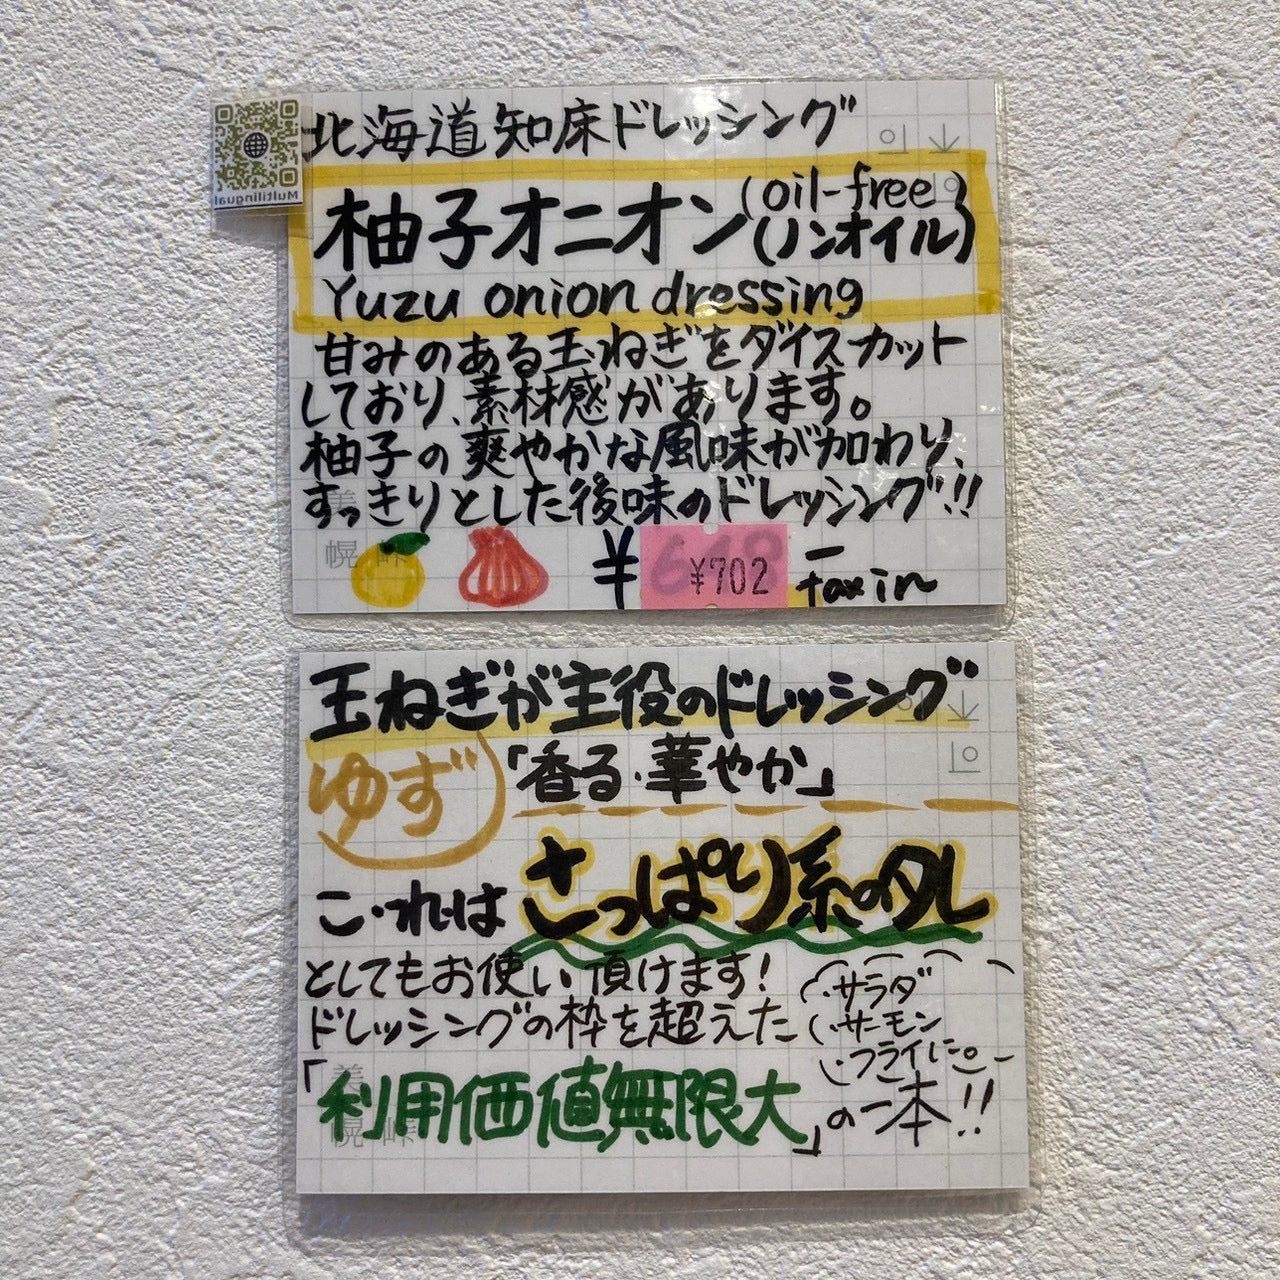 北海道知床ドレッシング
Multilingual
柚子オニオン(oil-free)
(ノンオイル)
Yuzu onion dressing
甘みのある玉ねぎをダイスカット
しており、素材感があります。
柚子の爽やかな風味が加わり、
すっきりとした後味のドレッシング!!
¥ ¥702 - tax in
玉ねぎが主役のドレッシング
ゆず「香る・華やか」
これは さっぱり系のタレ
としてもお使い頂けます!
ドレッシングの枠を超えた
・サラダ
・サーモン
・フライに
「利用価値無限大」の一本!!